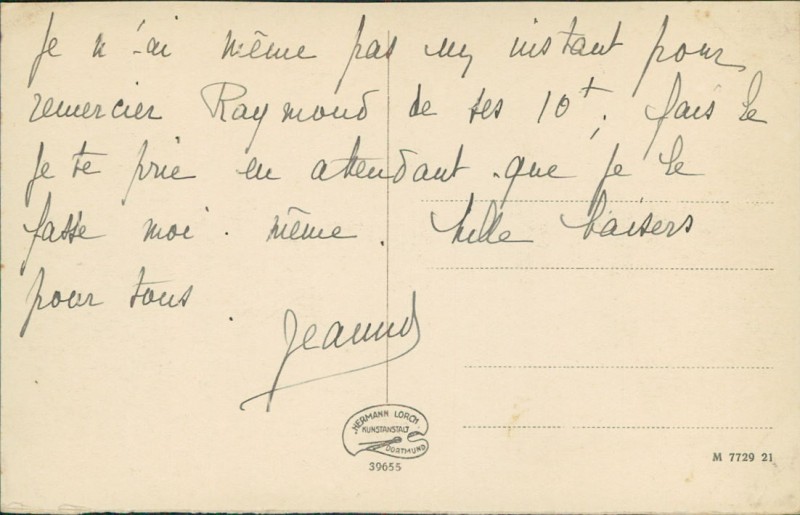 Je n'ai même pas un instant pour
remercier Raymond de ses 10f, fais le
je te prie en attendant que je le
fasse moi-même. Mille baisers
pour tous.
HERMANN LORCH
KUNSTANSTALT
DORTMUND
39655
M 7729 21